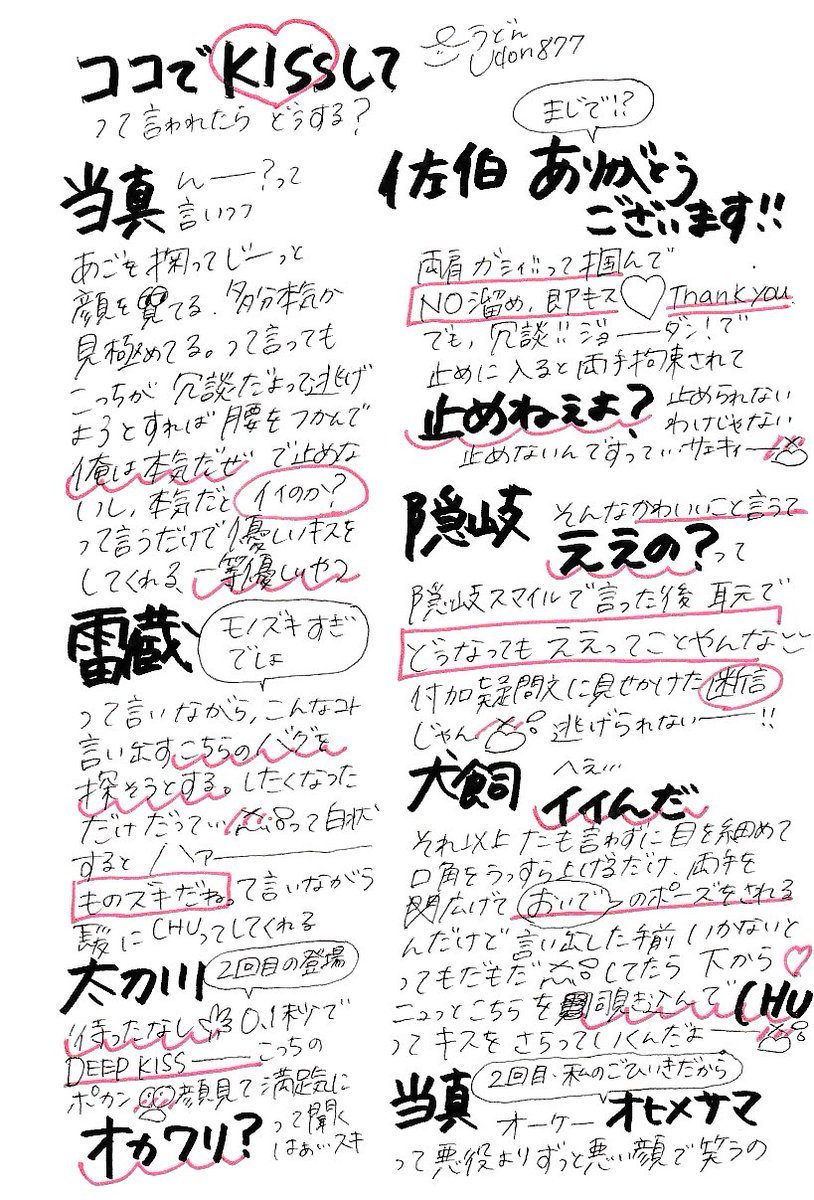 ココでKISSして
って言われたら どうする?
うどん
Udon877
当真
んー?って
言いつつ
あごを掬ってじーっと
顔を見てる、多分本気か
見極めてる。って言っても
こっちが冗談だよって逃げ
ようとすれば腰をつかんで
俺は本気だぜ で止めな
いし、本気だと イイのか?
って言うだけで優しいキスを
してくれる、一等優しいやつ
雷蔵
モノズキすぎ
でしょ
って言いながら、こんなコト
言い出すこちらのバグを
探そうとする。したくなった
だけだって…って白状
すると ハァー
ものズキだねって言いながら
髪にCHUってしてくれる
太刀川
2回目の登場
待ったなし 0.1秒で
DEEP KISS ー こっちの
ポカン顔見て満足気に
オカワリ?
って聞く
はぁ…スキ
まじで!?
佐伯 ありがとう
ございます!!
両肩ガシィって掴んで
NO溜め、即キス♡Thank you.
でも、冗談!!ジョーダン!で
止めに入ると両手拘束されて
止めねぇよ?
止められない
わけじゃない
止めないんですってぃ サエキィー
隠岐
そんなかわいいこと言うて
ええの?って
隠岐スマイルで言った後 耳元で
どうなってもええってことやんな
付加疑問文に見せかけた断信
じゃん 逃げられないー!!
犬飼
へぇ…
イイんだ
それ以上 たも言わずに目を細めて
口角をうっすら上げるだけ、両手を
広げて おいで のポーズをされる
んだけど言い出した手前 いかないと
ってもだもだ してたら 下から♡
ニュっとこちらを覗き込んで CHU
ってキスをさらっていくんだよー
当真
2回目・私のごひいきだから
オーケー オヒメサマ
って悪役よりずっと悪い顔で笑うの